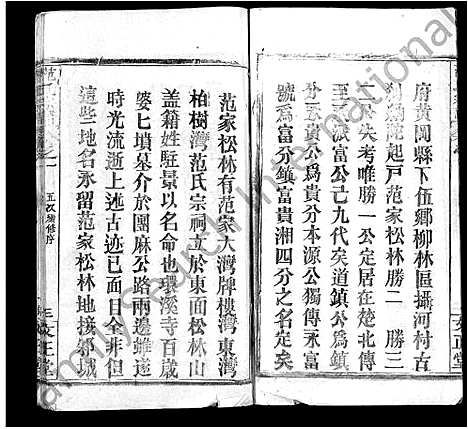 府黃岡縣下伍鄉柳林區攝河村古
起戶范家松林勝二 勝三
二 失考唯勝一公定居在楚北傳
至 派富公己九代矣道鎮公爲鎮
分 公爲貴分本源公獨傳永富
號爲富分鎮富貴湘四分之名定矣
范家松林有范家大灣牌樓灣東灣
柏樹灣范氏宗祠立於東面松林山
盖籍姓駐景以名命也環溪寺百歲
婆七墳墓介於團麻公路兩邊雖遂
時光流逝上述古迹已面目全非但
這些地名永留范家松林地接邾城
五次續修序
三正堂